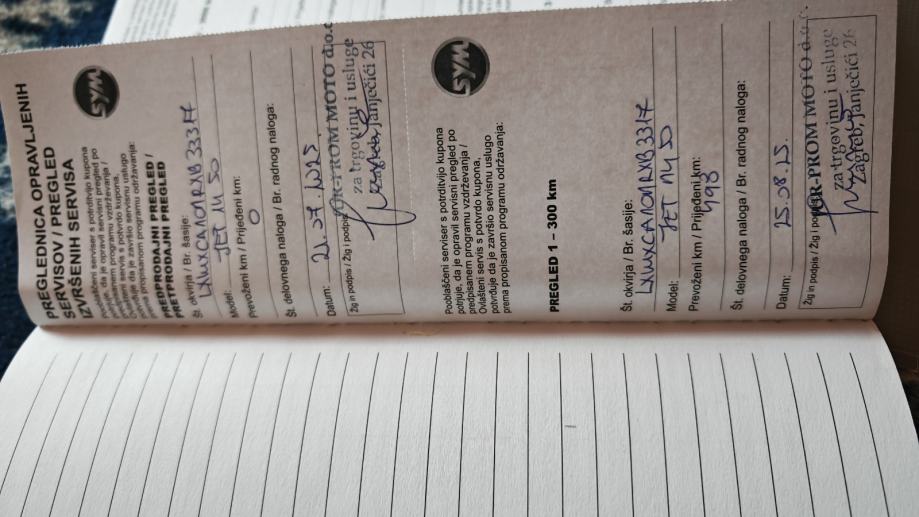 PREGLEDNICA OPRAVLJENIH
SERVISOV / PREGLED
IZVRŠENIH SERVISA
SYM
Pooblaščeni serviser s potrditvijo kupona
potrjuje, da je opravil servisni pregled po
predpisanem programu vzdrževanja /
Ovlašteni servis s potvrdo kupona,
potvrđuje da je završio servisnu uslugo
prema propisanom programu održavanja:
PREDPRODAJNI PREGLED /
PRETPRODAJNI PREGLED
Št. okvirja / Br. šasije:
Model:
JET 14 50
Prevoženi km / Prijeđeni km:
0
Št. delovnega naloga / Br. radnog naloga:
Datum:
Žig in podpis / Žig i podpis
PROM MOTO d.o.o
za trgovinu i usluge
Zagreb, Janječići 26
SYM
Pooblaščeni serviser s potrditvijo kupona
potrjuje, da je opravil servisni pregled po
predpisanem programu vzdrževanja /
Ovlašteni servis s potvrdo kupona,
potvrđuje da je završio servisnu uslugo
prema propisanom programu održavanja:
PREGLED 1 – 300 km
Št. okvirja / Br. šasije:
Model:
JET 14 50
Prevoženi km / Prijeđeni km:
498
Št. delovnega naloga / Br. radnog naloga:
Datum:
25.08.25.
Žig in podpis / Žig i pod
R-PROM MOTO d.o.o.
za trgovinu i usluge
Zagreb, Janječići 26